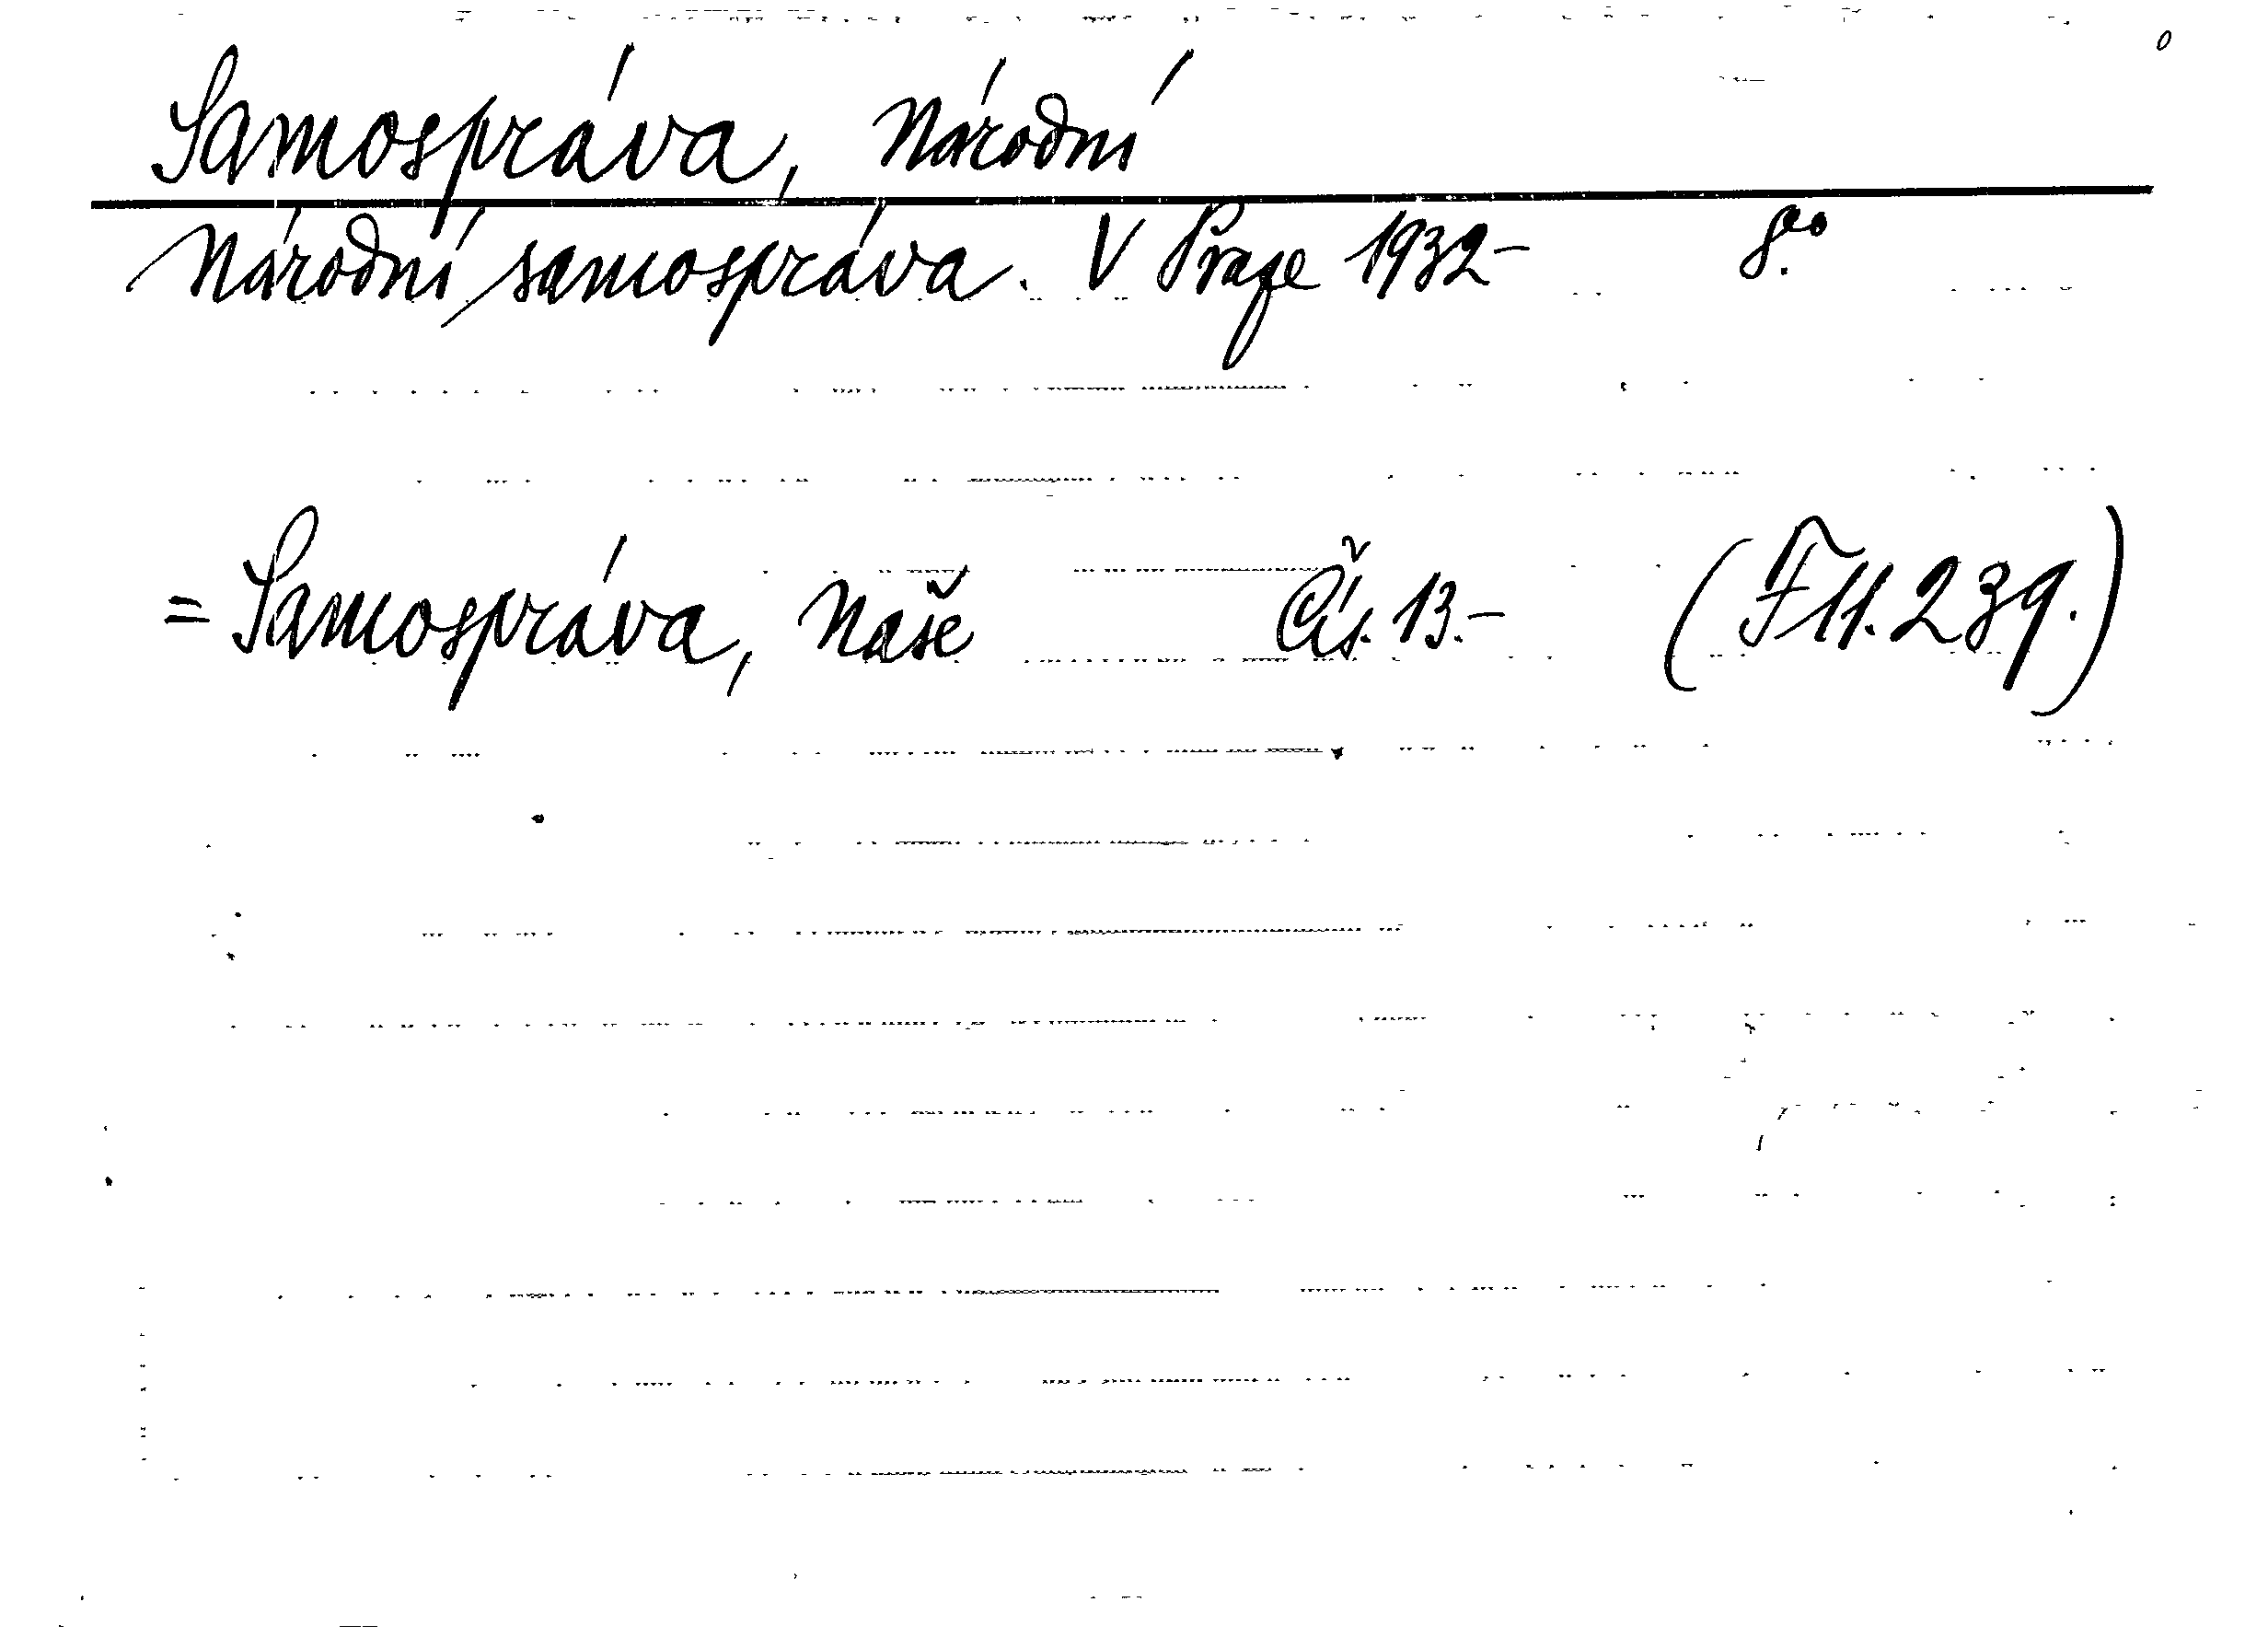 Samospráva, Národní
Národní samospráva. V Praze 1932- 8.º
= Samospráva, Naše Čís. 13.- (F 11.239.)